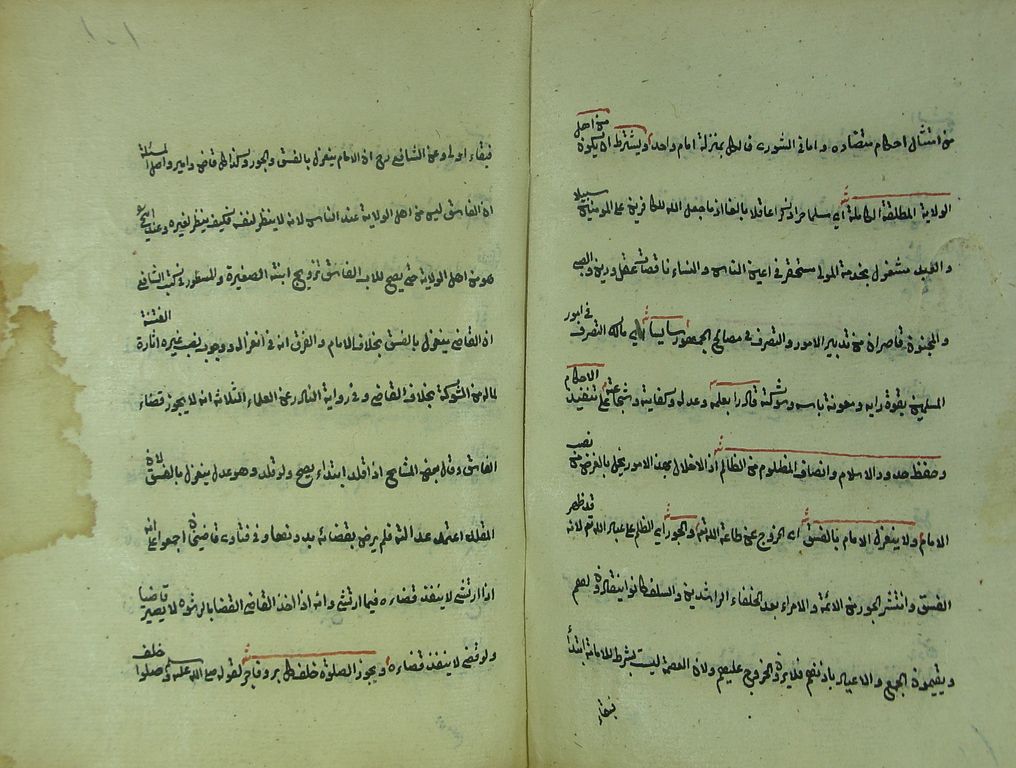 من امتثال احكام متضادة واما في الشورى فالكل بمنزلة امام واحد ويشترط ان يكون من اهل
الولاية المطلقة الكاملة اي مسلما حرا ذكرا عاقلا بالغا اذ ما جعل الله للكافرين على المؤمنين سبيلا
والعبد مشغول بخدمة المولى مستحقر في اعين الناس والنساء ناقصات عقل ودين والصبي
والمجنون قاصران عن تدبير الامور والتصرف في مصالح الجمهور سايسا اي مالك التصرف في امور
المسلمين بقوة رايه ومعونة باسه وشوكته قادرا بعلمه وعدله وكفايته وشجاعته على تنفيذ الاحكام
وحفظ حدود دار الاسلام وانصاف المظلوم من الظالم اذ الاخلال بهذه الامور يخل بالغرض من نصب
الامام ولا ينعزل الامام بالفسق اي الخروج عن طاعة الله تع والجور اي الظلم على عباد الله تع لانه قد ظهر
الفسق وانتشر الجور من الائمة والامراء بعد الخلفاء الراشدين والسلف كانوا ينقادون لهم
ويقيمون الجمع والاعياد باذنهم ولا يرون الخروج عليهم ولان العصمة ليست بشرط للامامة ابتداء
فبقاء
فبقاء اولى وعن الشافعي رح ان الامام ينعزل بالفسق والجور وكذا كل قاض وامير واصل المسئلة
ان الفاسق ليس من اهل الولاية عند الشافعي لانه لا ينظر لنفسه فكيف ينظر لغيره وعند ابي ح
هو من اهل الولاية حتى يصح للاب الفاسق تزويج ابنته الصغيرة والمسطور في كتب الشافعي
ان القاضي ينعزل بالفسق بخلاف الامام والفرق ان في انعزاله ووجوب نصب غيره اثارة الفتنة
لما له من الشوكة بخلاف القاضي وفي رواية النوادر عن العلماء الثلاثة انه لا يجوز قضاء
الفاسق وقال بعض المشايخ اذا قلد ابتداء يصح ولو قلد وهو عدل ينعزل بالفسق لان
المقلد اعتمد عدالته فلم يرض بقضائه بدونها وفي فتاوى قاضيخان اجمعوا على انه
اذا ارتشى لا ينفذ قضاءه فيما ارتشى وانه اذا اخذ القاضي القضا بالرشوة لا يصير قاضيا
ولو قضى لا ينفذ قضاءه ويجوز الصلوة خلف كل بر وفاجر لقوله صلى الله عليه وسلم صلوا خلف